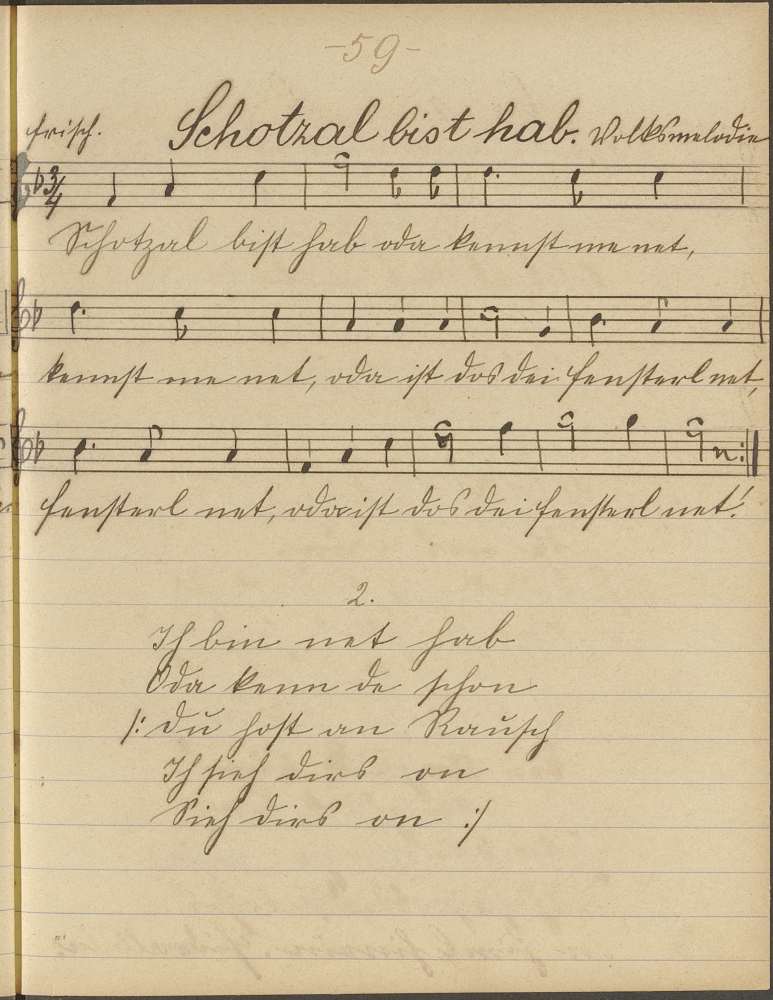 -59-
frisch. Schotzal bist hab. Volksmelodie
3/4
Schotzal bist hab oda kennst me net,
kennst me net, oda ist dos dei fensterl net,
fensterl net, oda ist dos dei fensterl net!
2.
Ich bin net hab
Oda kenn de schon
/: Du host an Rausch
Ich sieh dirs on
Sieh dirs on :/